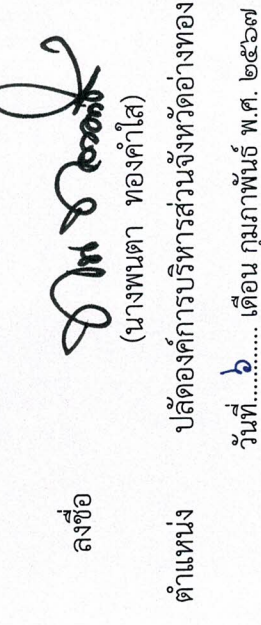 ลงชื่อ
(นางพนตา ทองคำใส)
ตำแหน่ง ปลัดองค์การบริหารส่วนจังหวัดอ่างทอง
วันที่ ๖ เดือน กุมภาพันธ์ พ.ศ. ๒๕๖๗